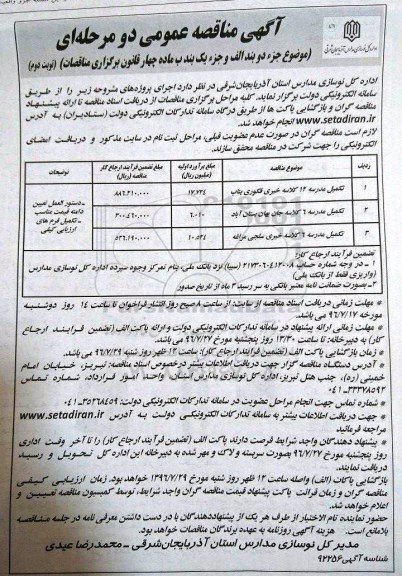 آگهی مناقصه عمومی دو مرحله‌ای
(موضوع جزء دو بند الف و جزء یک بند ب ماده چهار قانون برگزاری مناقصات) (نوبت دوم)
اداره کل نوسازی مدارس استان آذربایجان‌شرقی در نظر دارد اجرای پروژه‌های مشروحه زیر را از طریق
سامانه الکترونیکی دولت برگزار نماید. کلیه مراحل برگزاری مناقصات از دریافت اسناد مناقصه تا ارائه پیشنهاد
مناقصه گران و بازگشایی پاکت ها از طریق درگاه سامانه تدارکات الکترونیکی دولت (ستادیران) به آدرس
www.setadiran.ir انجام خواهد شد.
لازم است مناقصه گران در صورت عدم عضویت قبلی، مراحل ثبت نام در سایت مذکور و دریافت امضای
الکترونیکی را جهت شرکت در مناقصه محقق سازند.
ردیف موضوع مناقصه مبلغ برآورد اولیه (میلیون ریال) مبلغ تضمین فرآیند ارجاع کار مناقصه (ریال) توضیحات
۱ تکمیل مدرسه ۱۲ کلاسه خیری فکوری بناب ۱۷.۷۲۴ ۸۸۶.۲۱۰.۰۰۰
۲ تکمیل مدرسه ۶ کلاسه خیری جان جان بستان آباد ۶.۰۱۰ ۳۰۰.۴۶۰.۰۰۰
۳ تکمیل مدرسه ۶ کلاسه خیری سلجی مراغه ۱۰.۵۲۴ ۵۲۶.۱۹۰.۰۰۰
ـ دستور العمل تعیین
دامنه قیمت مناسب
ـ تکمیل فرم های
ارزیابی کیفی
تضمین فرآیند ارجاع کار:
۱ـ در وجه شماره حساب ۲۱۷۳۰۶۰۴۱۲۰۰۸ (سیبا) نزد بانک ملی، بنام تمرکز وجوه سپرده اداره کل نوسازی مدارس
(واریزی فقط از بانک ملی)
۲ـ بصورت ضمانت نامه معتبر بانکی به سر رسید ۳ ماه از تاریخ صدور
* مهلت زمانی دریافت اسناد مناقصه از سایت: از ساعت ۸ صبح روز انتشار فراخوان تا ساعت ۱۴ روز دوشنبه
مورخه ۹۶/۷/۱۷ می باشد.
* مهلت زمانی ارائه پیشنهاد در سامانه تدارکات الکترونیکی دولت و ارائه پاکت الف (تضمین فرآیند ارجاع
کار) به دبیرخانه: تا ساعت ۱۳/۳۰ روز پنجشنبه مورخ ۹۶/۷/۲۷ می باشد.
* زمان بازگشایی پاکت الف (تضمین فرآیند ارجاع کار): ساعت ۱۲ ظهر روز شنبه ۹۶/۷/۲۹ می باشد.
* آدرس دستگاه مناقصه گزار جهت دریافت اطلاعات بیشتر درخصوص اسناد مناقصه: تبریز، خیابان امام
خمینی (ره)، جنب هتل تبریز، اداره کل نوسازی مدارس استان، واحد امور قرارداد، شماره تماس
۰۴۱-۳۳۳۷۸۵۹۳
* شماره تماس جهت انجام مراحل عضویت در سامانه تدارکات الکترونیکی دولت: ۰۴۱-۳۵۳۸۴۵۶۹
* جهت دریافت اطلاعات بیشتر به سامانه تدارکات الکترونیکی دولت به آدرس www.setadiran.ir
مراجعه فرمائید
* پیشنهاد دهندگان واجد شرایط فرصت دارند پاکت الف (تضمین فرآیند ارجاع کار) را تا آخر وقت اداری
روز پنجشنبه مورخ ۹۶/۷/۲۷ بصورت سربسته و لاک و مهر شده به دبیرخانه این اداره کل تحویل و رسید
دریافت نمایند.
بازگشایی پاکات (الف) واصله ساعت ۱۲ ظهر روز شنبه مورخ ۱۳۹۶/۷/۲۹ خواهد بود. زمان ارزیابی کیفی
مناقصه گران و زمان قرائت پاکت پیشنهاد قیمت مناقصه گران واجد شرایط، توسط کمیسیون مناقصه تعیین و
اعلام خواهد شد.
حضور نماینده تام الاختیار از طرف هر یک از پیشنهاددهندگان با در دست داشتن معرفی نامه در جلسه مناقصه
بلامانع است. هزینه آگهی روزنامه به عهده برندگان مناقصات خواهد بود.
مدیر کل نوسازی مدارس استان آذربایجان‌شرقی ـ محمدرضا عبدی
شناسه آگهی ۹۲۲۵۶